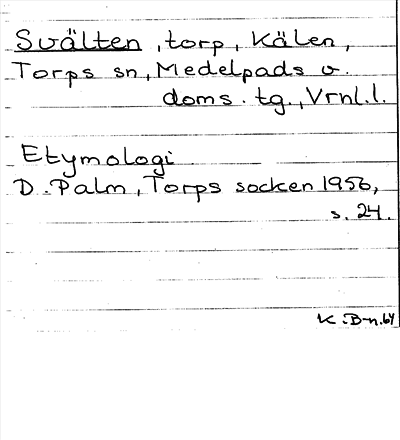 Svälten, torp, Kälen,
Torps sn, Medelpads v.
doms. tg., Vrnl.l.
Etymologi
D. Palm, Torps socken 1956,
s. 24.
K.B-n.64